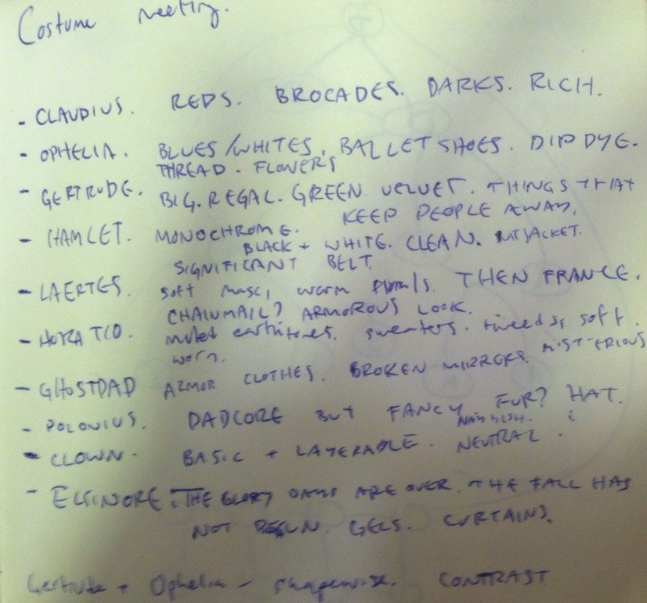 Costume meeting.
- CLAUDIUS. REDS. BROCADES. DARKS. RICH.
- OPHELIA. BLUES/WHITES. BALLET SHOES. DIP DYE.
THREAD. FLOWERS
- GERTRUDE. BIG. REGAL. GREEN. VELVET. THINGS THAT
KEEP PEOPLE AWAY.
- HAMLET. MONOCHROME.
BLACK + WHITE. CLEAN. JACKET.
SIGNIFICANT BELT.
- LAERTES. soft masc, warm florals. THEN FRANCE.
CHAINMAIL? ARMOROUS LOOK.
- HORATIO. muted earthtones. sweaters. tweeds, soft.
worn.
- GHOSTDAD ARMOR CLOTHES. BROKEN MIRRORS. MYSTERIOUS
- POLONIUS. DADCORE BUT FANCY. FUR? HAT.
- CLOWN. BASIC + LAYERABLE. NEUTRAL
- ELSINORE. THE GLORY DAYS ARE OVER. THE FALL HAS
NOT BEGUN. GELS. CURTAINS.
Gertrude + Ophelia - shapewise. CONTRAST